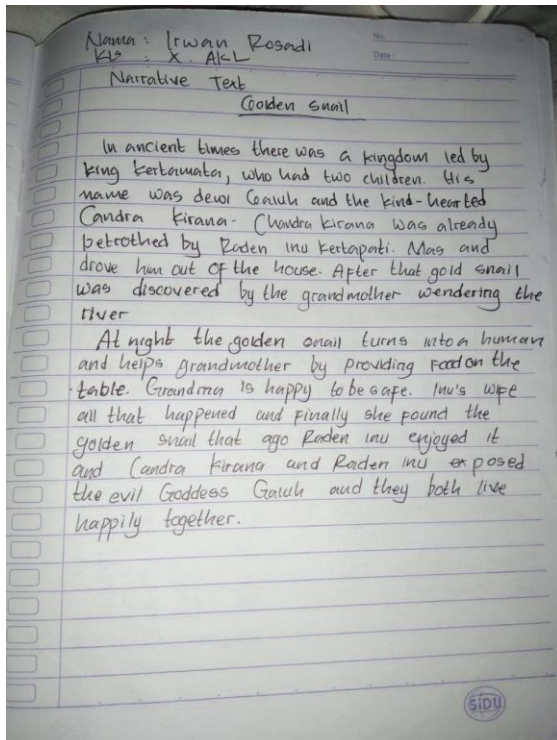 No.
Date:
Nama : Irwan Rosadi
Kls : X. AKL
Narrative Text
Goolden snail
In ancient times there was a kingdom led by
king kertamata, who had two children. His
name was dewi Galuh and the kind-hearted
Candra kirana. Chandra kirana was already
betrothed by Raden inu kertapati. Mas and
drove him out of the house. After that gold snail
was discovered by the grandmother wendering the
river
At night the golden snail turns into a human
and helps grandmother by providing food on the
table. Grandma is happy to be safe. Inu's wife
all that happened and finally she found the
golden snail that ago Raden inu enjoyed it
and Candra kirana and Raden inu exposed
the evil Goddess Galuh and they both live
happily together.
SIDU